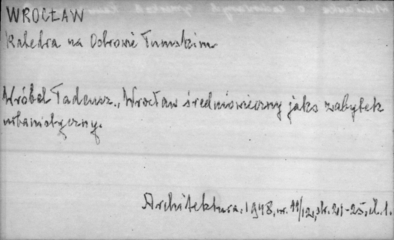 WROCŁAW
Katedra na Ostrowie Tumskim
Wróbel Tadeusz., Wrocław średniowieczny jako zabytek
urbanistyczny.
Architektura, 1948, nr. 11/12, str. 21-25, il. 1.